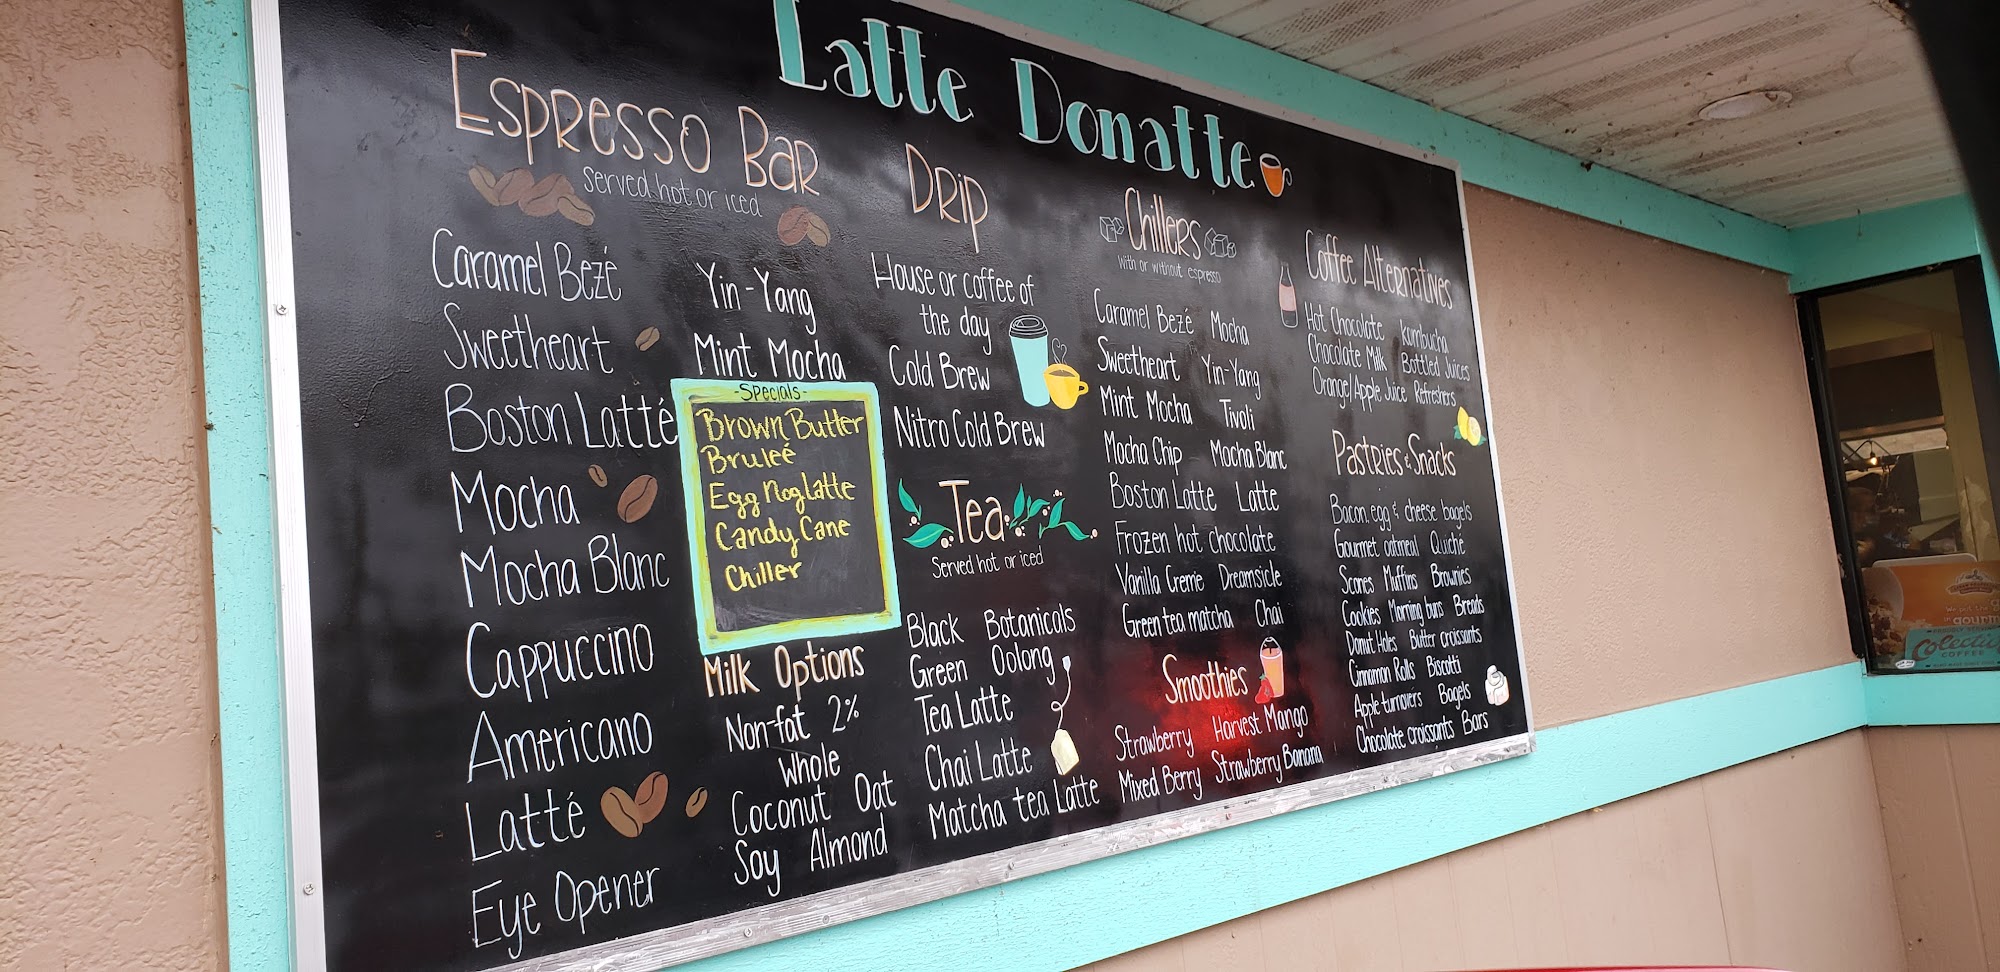 Latte Donatte
Espresso Bar
served hot or iced
Caramel Bezé
Sweetheart
Boston Latté
Mocha
Mocha Blanc
Cappuccino
Americano
Latté
Eye Opener
Yin-Yang
Mint Mocha
-Specials-
Brown Butter
Bruleé
Egg Nog Latte
Candy Cane
Chiller
Milk Options
Non-fat 2%
Whole
Coconut Oat
Soy Almond
Drip
House or coffee of
the day
Cold Brew
Nitro Cold Brew
Tea
Served hot or iced
Black Botanicals
Green Oolong
Tea Latte
Chai Latte
Matcha tea Latte
Chillers
with or without espresso
Caramel Bezé Mocha
Sweetheart Yin-Yang
Mint Mocha Tivoli
Mocha Chip Mocha Blanc
Boston Latte Latte
Frozen hot chocolate
Vanilla Creme Dreamsicle
Green tea matcha Chai
Smoothies
Strawberry Harvest Mango
Mixed Berry Strawberry Banana
Coffee Alternatives
Hot Chocolate kumbucha
Chocolate Milk Bottled Juices
Orange/Apple Juice Refreshers
Pastries & Snacks
Bacon, egg & cheese bagels
Gourmet oatmeal Quiché
Scones Muffins Brownies
Cookies Morning buns Breads
Donut Holes Butter croissants
Cinnamon Rolls Biscotti
Apple turnovers Bagels
Chocolate croissants Bars
We put the
in gourm
COFFEE